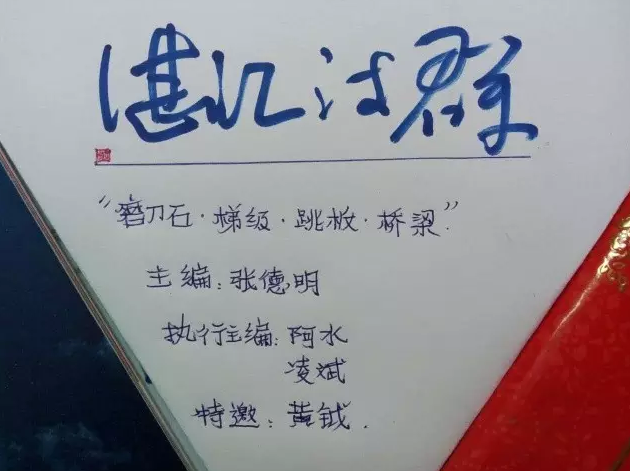 湛江诗群
“磨刀石·梯级·跳板·桥梁”
主编：张德明
执行主编：阿水
凌斌
特邀：黄钺.